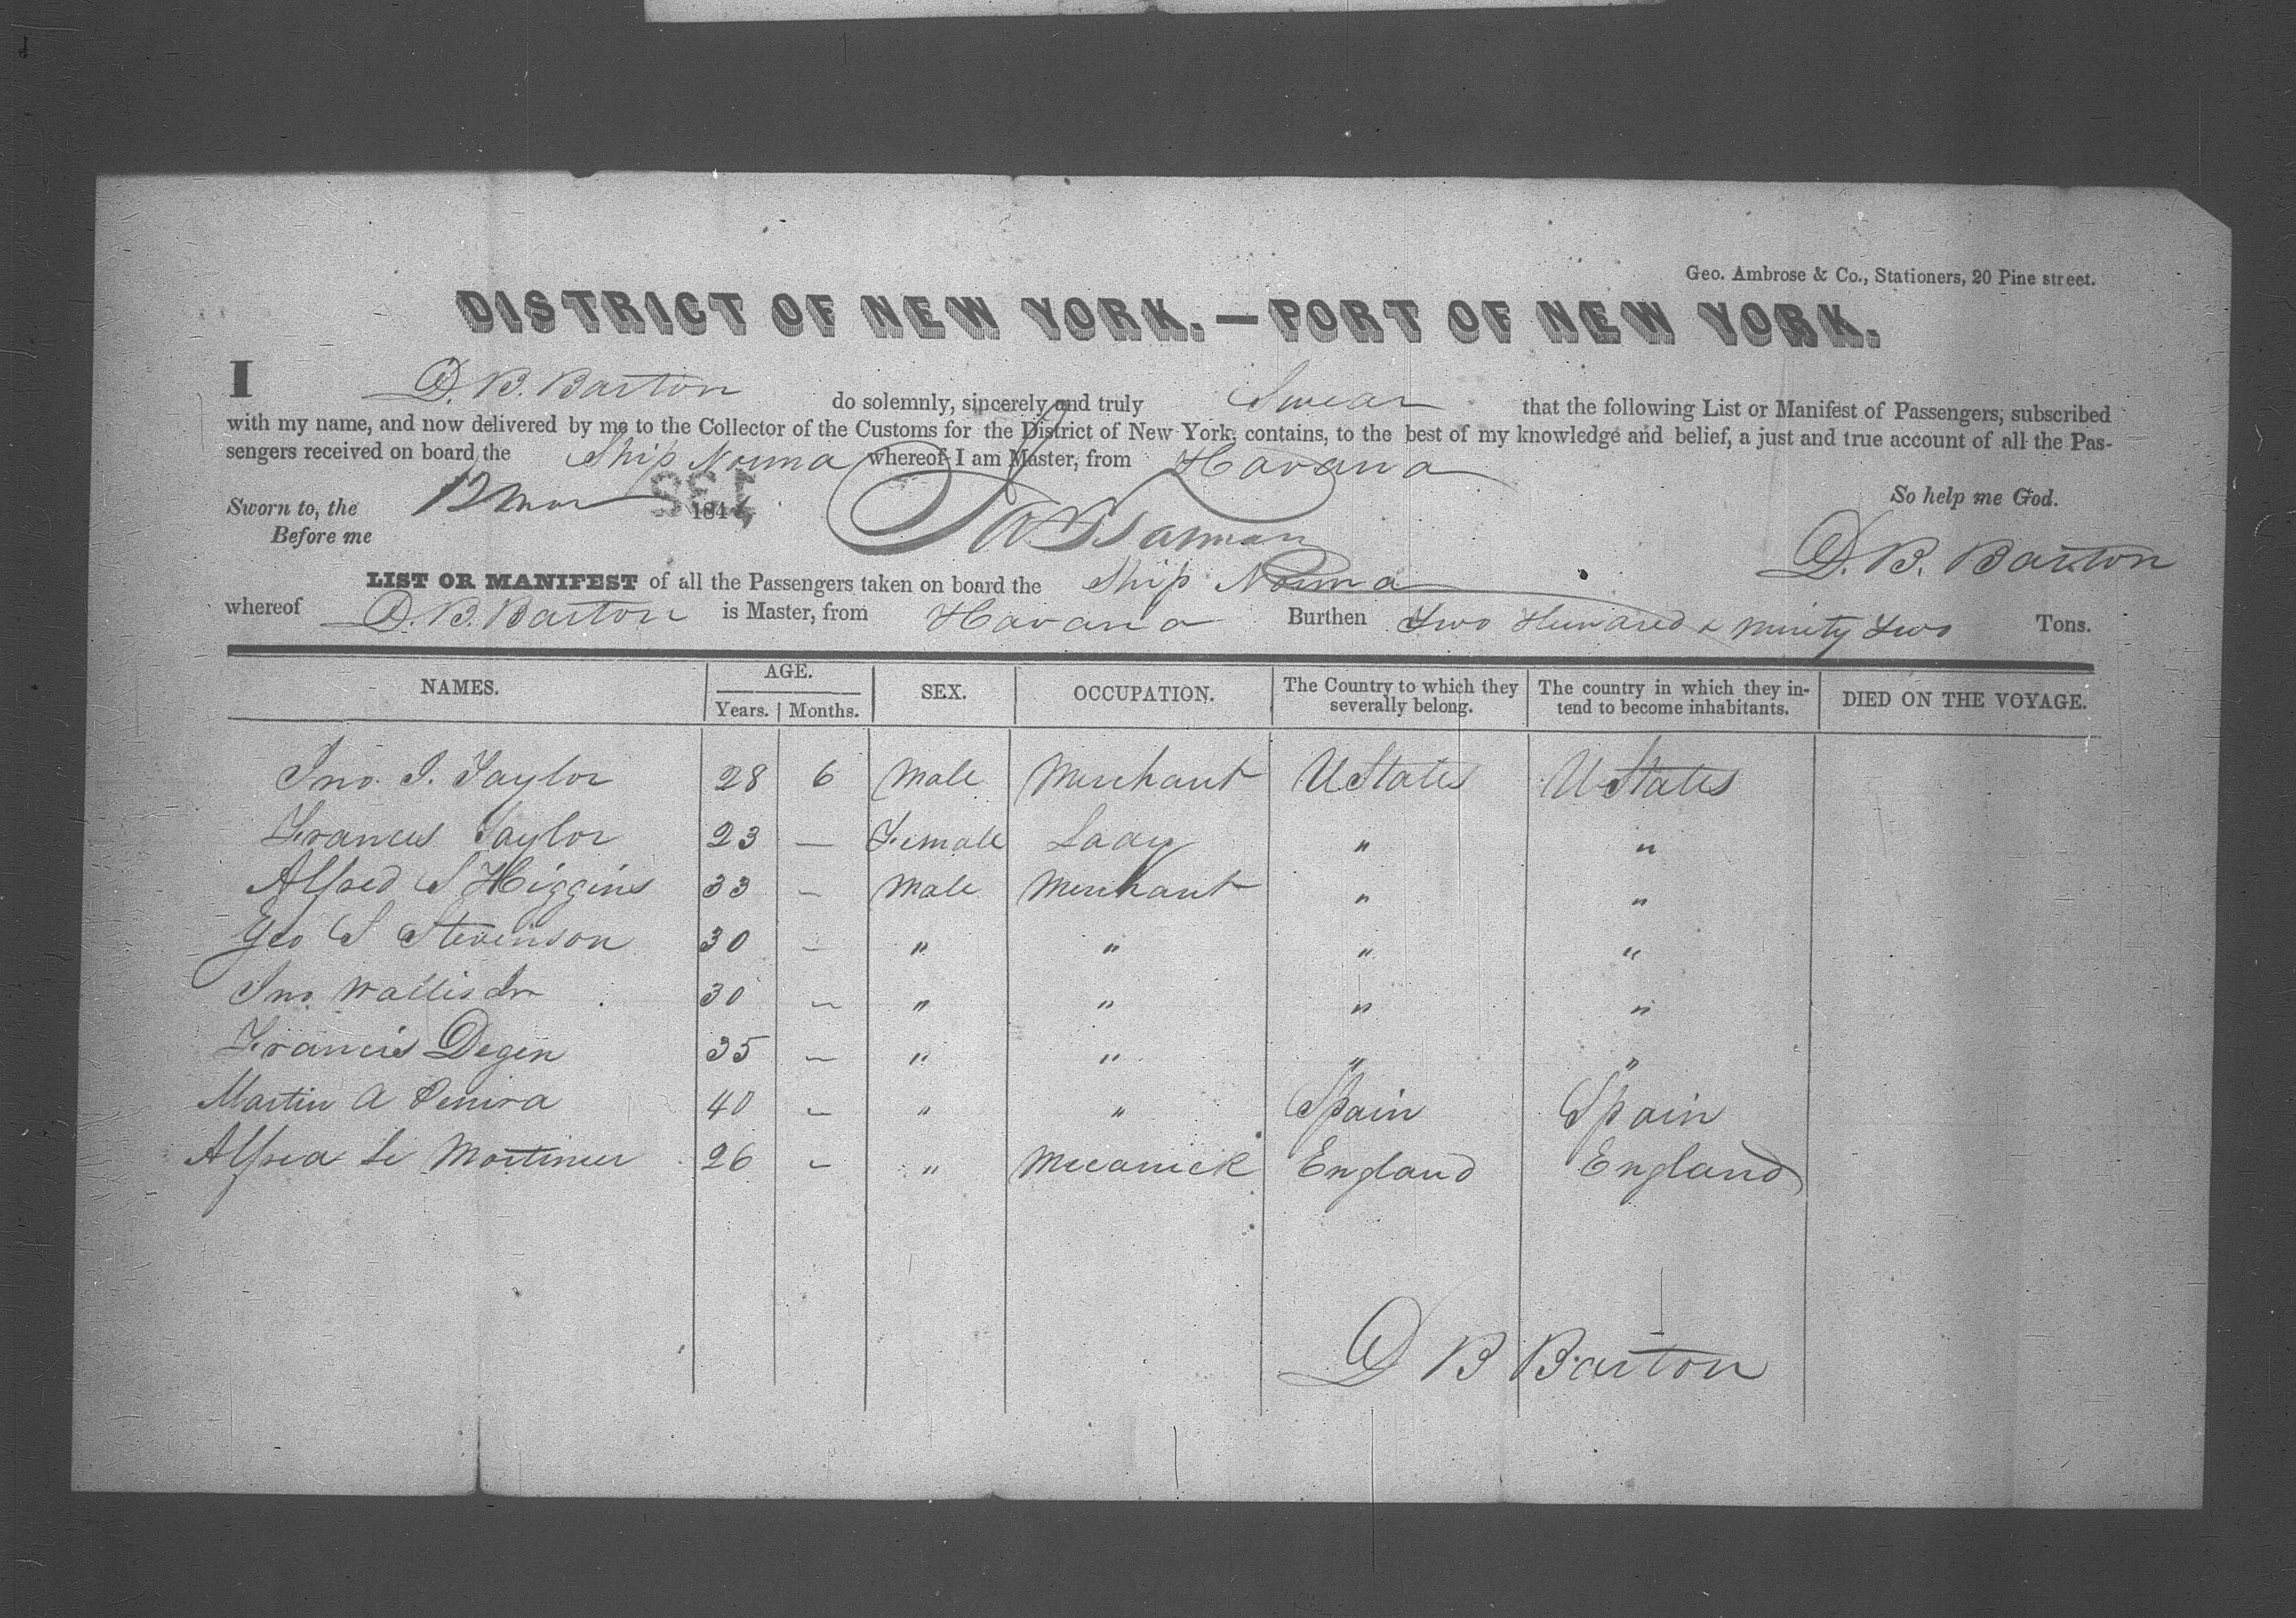 Geo. Ambrose & Co., Stationers, 20 Pine street.
DISTRICT OF NEW YORK.—PORT OF NEW YORK.
I D. B. Barton do solemnly, sincerely and truly Swear that the following List or Manifest of Passengers, subscribed
with my name, and now delivered by me to the Collector of the Customs for the District of New York, contains, to the best of my knowledge and belief, a just and true account of all the Pas-
sengers received on board the Ship Norma whereof I am Master, from Havana
So help me God.
Sworn to, the 12 Mar 184
Before me
D. B. Barton
LIST OR MANIFEST of all the Passengers taken on board the Ship Norma
whereof D. B. Barton is Master, from Havana Burthen Two Hundred & ninety Two Tons.
NAMES. AGE. SEX. OCCUPATION. The Country to which they severally belong. The country in which they in- tend to become inhabitants. DIED ON THE VOYAGE.
Years. Months.
Jno. J. Taylor 28 6 Male Merchant UStates UStates
Frances Taylor 23 — Female Lady " "
Alfred S Higgins 33 – Male Merchant " "
Geo S Stevenson 30 – " " " "
Jno. Wallis Jr 30 – " " " "
Francis Degen 35 – " " " "
Martin A 40 – " " Spain Spain
Alfred Le Mortimer 26 – " Mecanick England England
D B Barton